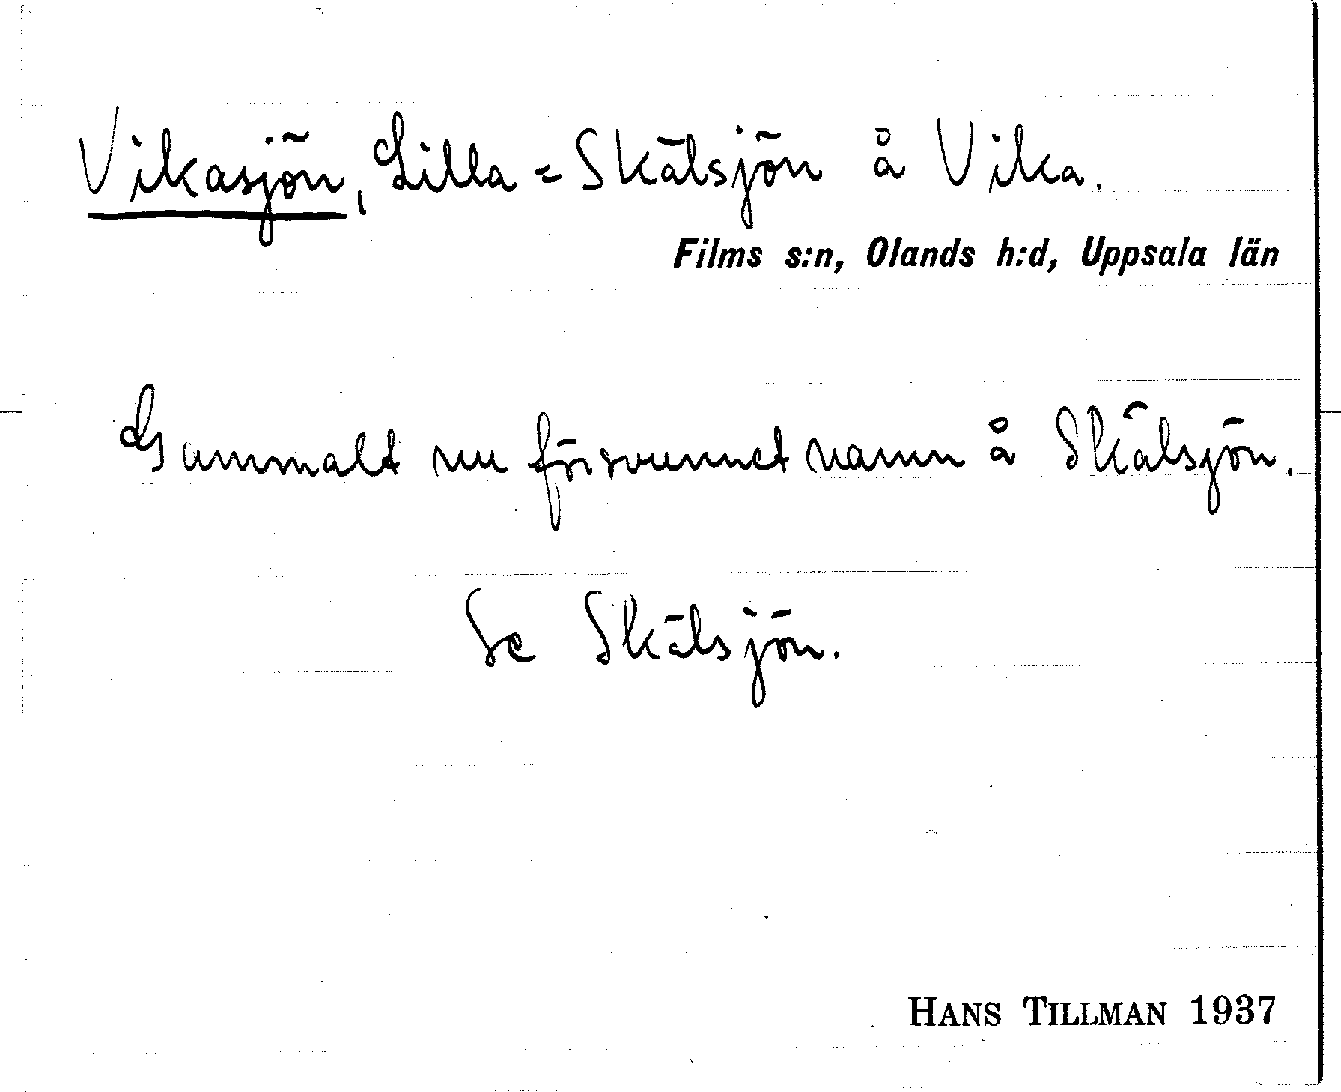 Vikasjön, Lilla = Skälsjön å Vika.
Films s:n, Olands h:d, Uppsala län
Gammalt nu försvunnet namn å Skälsjön.
Se Skälsjön.
HANS TILLMAN 1937